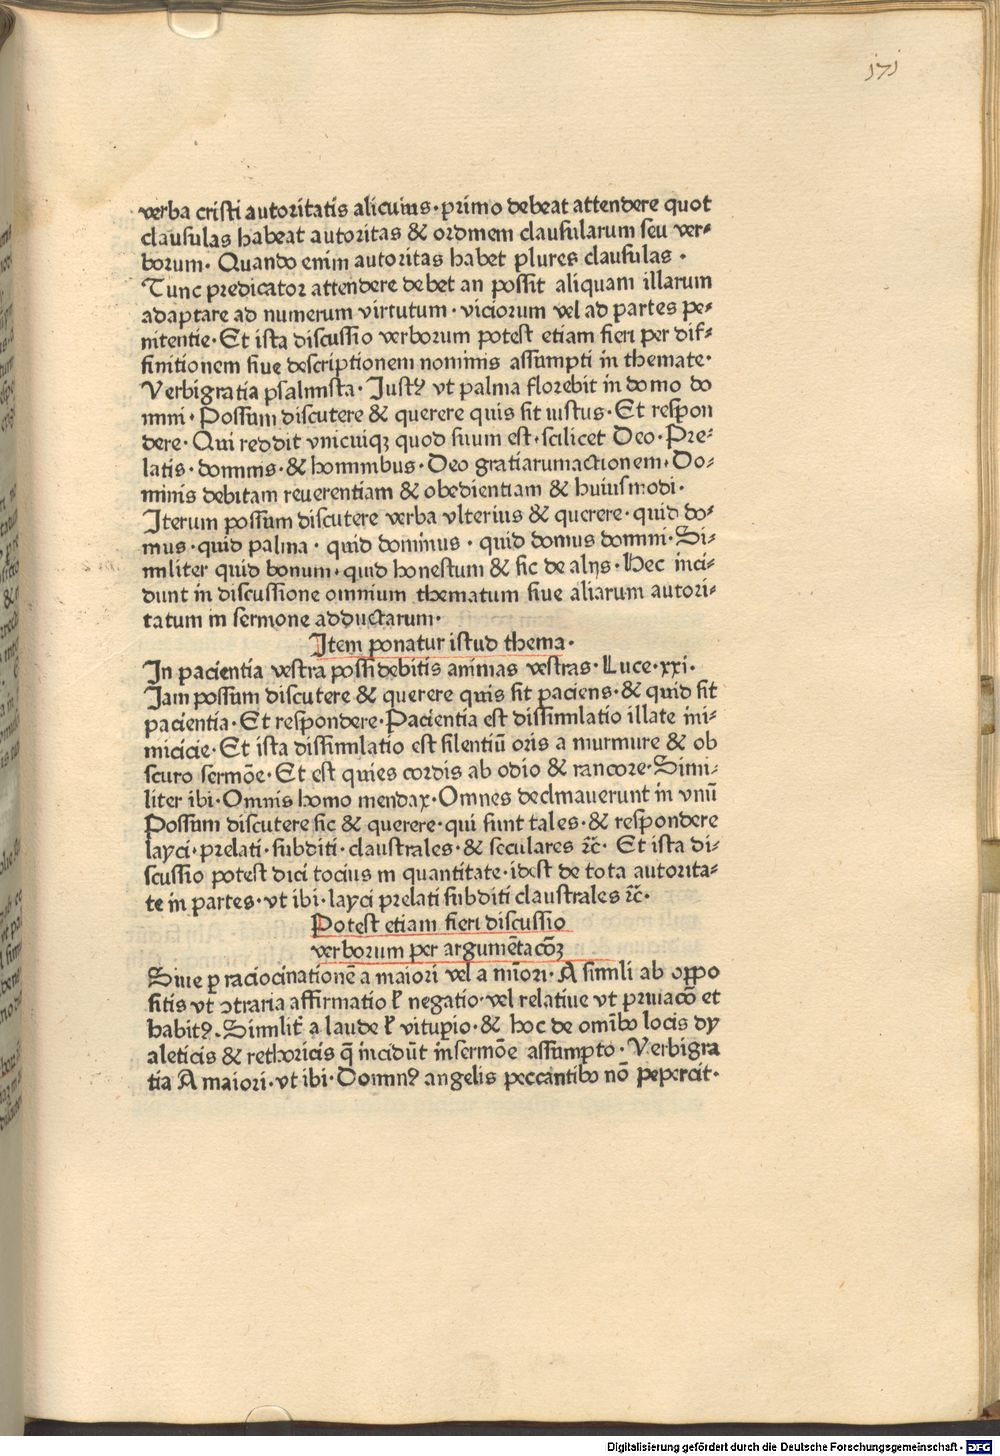 j7j
verba cristi autoritatis alicuius · primo debeat attendere quot
clausulas habeat autoritas & ordinem clausularum seu ver⸗
borum · Quando enim autoritas habet plures clausulas ·
Tunc predicator attendere debet an possit aliquam illarum
adaptare ad numerum virtutum · viciorum vel ad partes pe⸗
nitentie · Et ista discussio verborum potest etiam fieri per dif⸗
finitionem siue descriptionem nominis assumpti in themate ·
Verbigratia psalmista · Justꝰ vt palma florebit in domo do
mini · Possum discutere & querere quis sit iustus · Et respon
dere · Qui reddit vnicuiqꝫ quod suum est · scilicet Deo · Pre⸗
latis · dominis · & hominibus · Deo gratiarumactionem · Do⸗
minis debitam reuerentiam & obedientiam & huiusmodi ·
Iterum possum discutere verba vlterius & querere · quid do⸗
mus · quid palma · quid dominus · quid domus domini · Si⸗
militer quid bonum · quid honestum & sic de alijs · Hec inci⸗
dunt in discussione omnium thematum siue aliarum autori⸗
tatum in sermone adductarum ·
Item ponatur istud thema ·
In pacientia vestra possidebitis animas vestras · Luce · xxi ·
Jam possum discutere & querere quis sit paciens · & quid sit
pacientia · Et respondere · Pacientia est dissimilatio illate ini⸗
micicie · Et ista dissimilatio est silentiū oris a murmure & ob
scuro sermōe · Et est quies cordis ab odio & rancore · Simi⸗
liter ibi · Omnis homo mendax · Omnes declinauerunt in vnū
Possum discutere sic & querere · qui sunt tales · & respondere
layci · prelati · subditi · claustrales · & seculares ⁊c̄ · Et ista di⸗
scussio potest dici tocius in quantitate · idest de tota autorita⸗
te in partes · vt ibi · layci prelati subditi claustrales ⁊c̄ ·
Potest etiam fieri discussio
verborum per argumētacōꝫ
Siue ꝑ raciocinationē a maiori vel a mīori · A simili ab oꝑpo
sitis vt ↄtraria affirmatio ł negatio · vel relatiue vt priuacō et
habitꝰ · Similiť a laude ł vituꝑio · & hoc de omībꝰ locis dy
aleticis & rethoricis q̄ incidūt insermōe assumpto · Verbigra
tia A maiori · vt ibi · Dominꝰ angelis peccantibꝰ nō pepercit ·
Digitalisierung gefördert durch die Deutsche Forschungsgemeinschaft · DFG